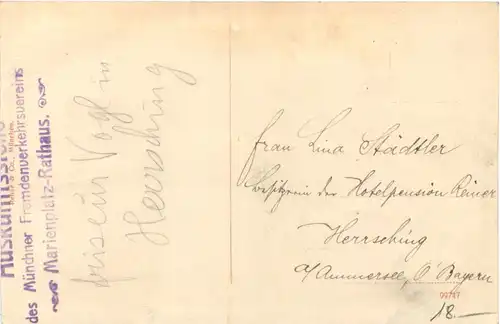 Auskunftsstelle
des Münchner Fremdenverkehrsvereins
Marienplatz-Rathaus.
Friseur Vogl in
Herrsching
Frau Lina Städtler
Besitzerin der Hotelpension Reiner
Herrsching
a/Ammersee, O'Bayern
99747
18.—